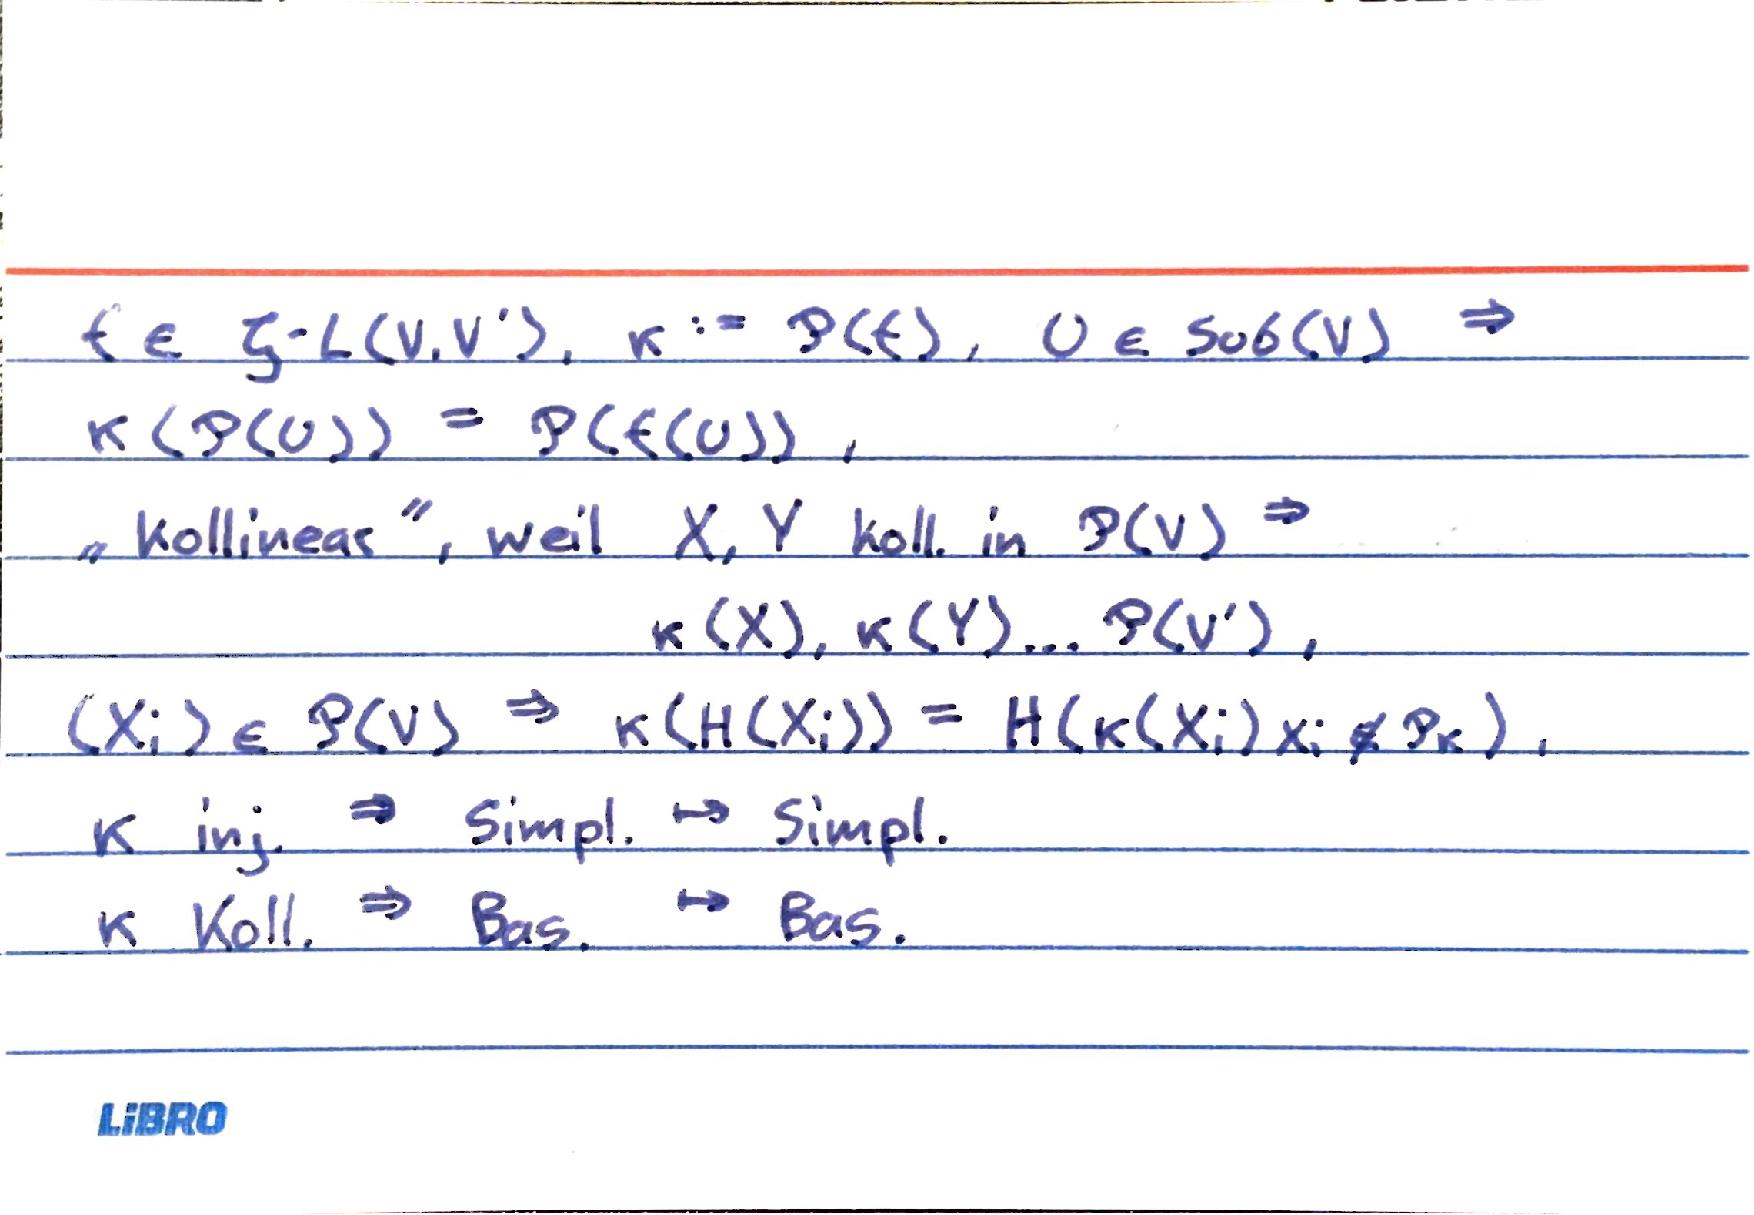 f ∈ ζ-L(V,V'), κ := P(f), U ∈ Sub(V) ⇒
κ(P(U)) = P(f(U)),
„Kollinear", weil X, Y koll. in P(V) ⇒
κ(X), κ(Y)... P(V'),
(Xᵢ) ∈ P(V) ⇒ κ(H(Xᵢ)) = H(κ(Xᵢ) Xᵢ ∉ Pκ),
κ inj. ⇒ Simpl. ↦ Simpl.
κ Koll. ⇒ Bas. ↦ Bas.
LiBRO